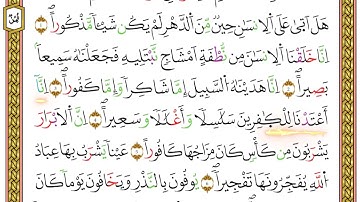 هَلْ أَتَىٰ عَلَى ٱلْإِنسَٰنِ حِينٌ مِّنَ ٱلدَّهْرِ لَمْ يَكُن شَيْـًٔا مَّذْكُورًا ١
إِنَّا خَلَقْنَا ٱلْإِنسَٰنَ مِن نُّطْفَةٍ أَمْشَاجٍ نَّبْتَلِيهِ فَجَعَلْنَٰهُ سَمِيعًۢا
بَصِيرًا ٢ إِنَّا هَدَيْنَٰهُ ٱلسَّبِيلَ إِمَّا شَاكِرًا وَإِمَّا كَفُورًا ٣ إِنَّآ
أَعْتَدْنَا لِلْكَٰفِرِينَ سَلَٰسِلَا۟ وَأَغْلَٰلًا وَسَعِيرًا ٤ إِنَّ ٱلْأَبْرَارَ
يَشْرَبُونَ مِن كَأْسٍ كَانَ مِزَاجُهَا كَافُورًا ٥ عَيْنًا يَشْرَبُ بِهَا عِبَادُ
ٱللَّهِ يُفَجِّرُونَهَا تَفْجِيرًا ٦ يُوفُونَ بِٱلنَّذْرِ وَيَخَافُونَ يَوْمًا كَانَ